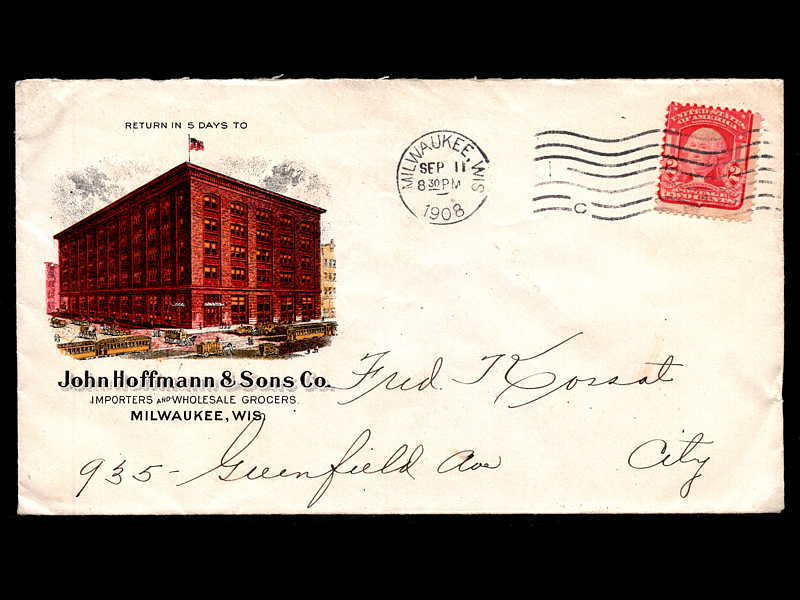 RETURN IN 5 DAYS TO
MILWAUKEE, WIS
SEP 11
8 30 PM
1908
C
UNITED STATES
OF AMERICA
2 2
TWO CENTS
John Hoffmann & Sons Co.
IMPORTERS AND WHOLESALE GROCERS.
MILWAUKEE, WIS.
Fred T Kossat
935- Greenfield Ave
City